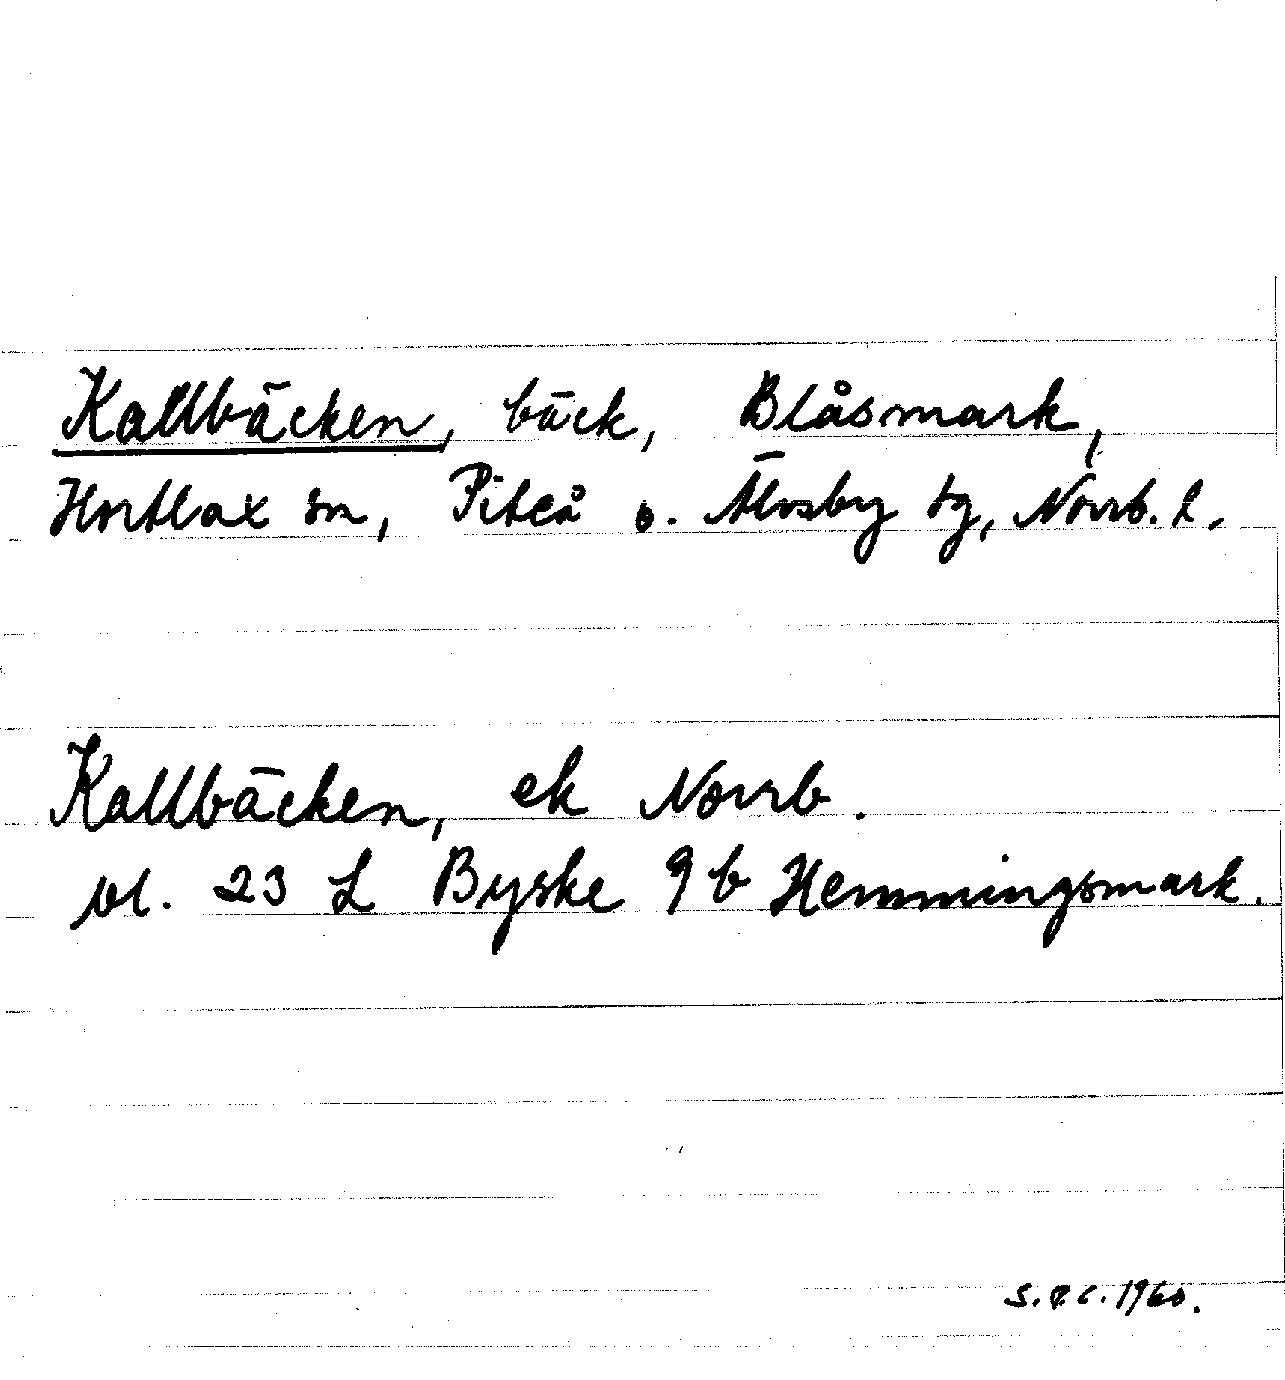 Kallbäcken, bäck, Blåsmark,
Hortlax sn, Piteå o. Älvsby tg, Norrb. l.
Kallbäcken, ek Norrb.
bl. 23 L Byske 9 b Hemmingsmark.
S.E.C. 1960.